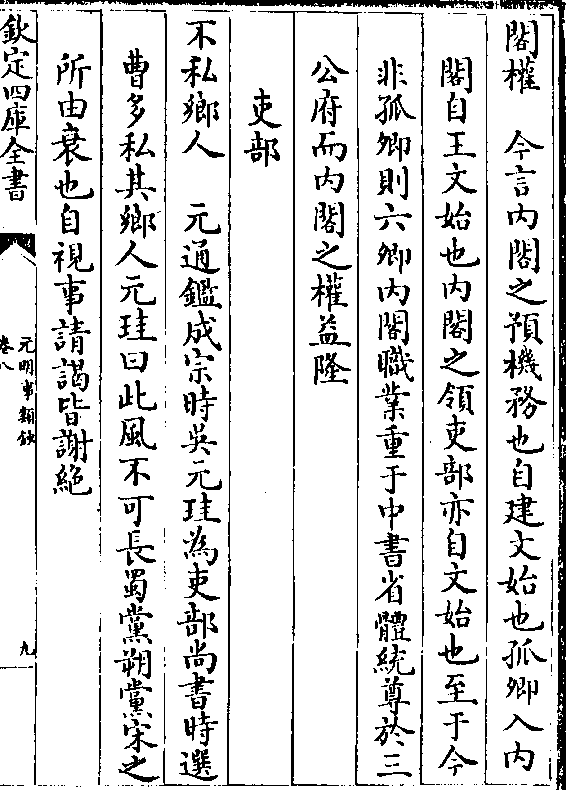 閣權　今言内閣之預機務也自建文始也孤卿入内
閣自王文始也内閣之領吏部亦自文始也至于今
非孤卿則六卿内閣職業重于中書省體統尊於三
公府而内閣之權益隆
吏部
不私鄉人　元通鑑成宗時吳元珪為吏部尚書時選
曹多私其鄉人元珪曰此風不可長蜀黨朔黨宋之
所由衰也自視事請謁皆謝絶
欽定四庫全書
元明事類鈔
卷八
九